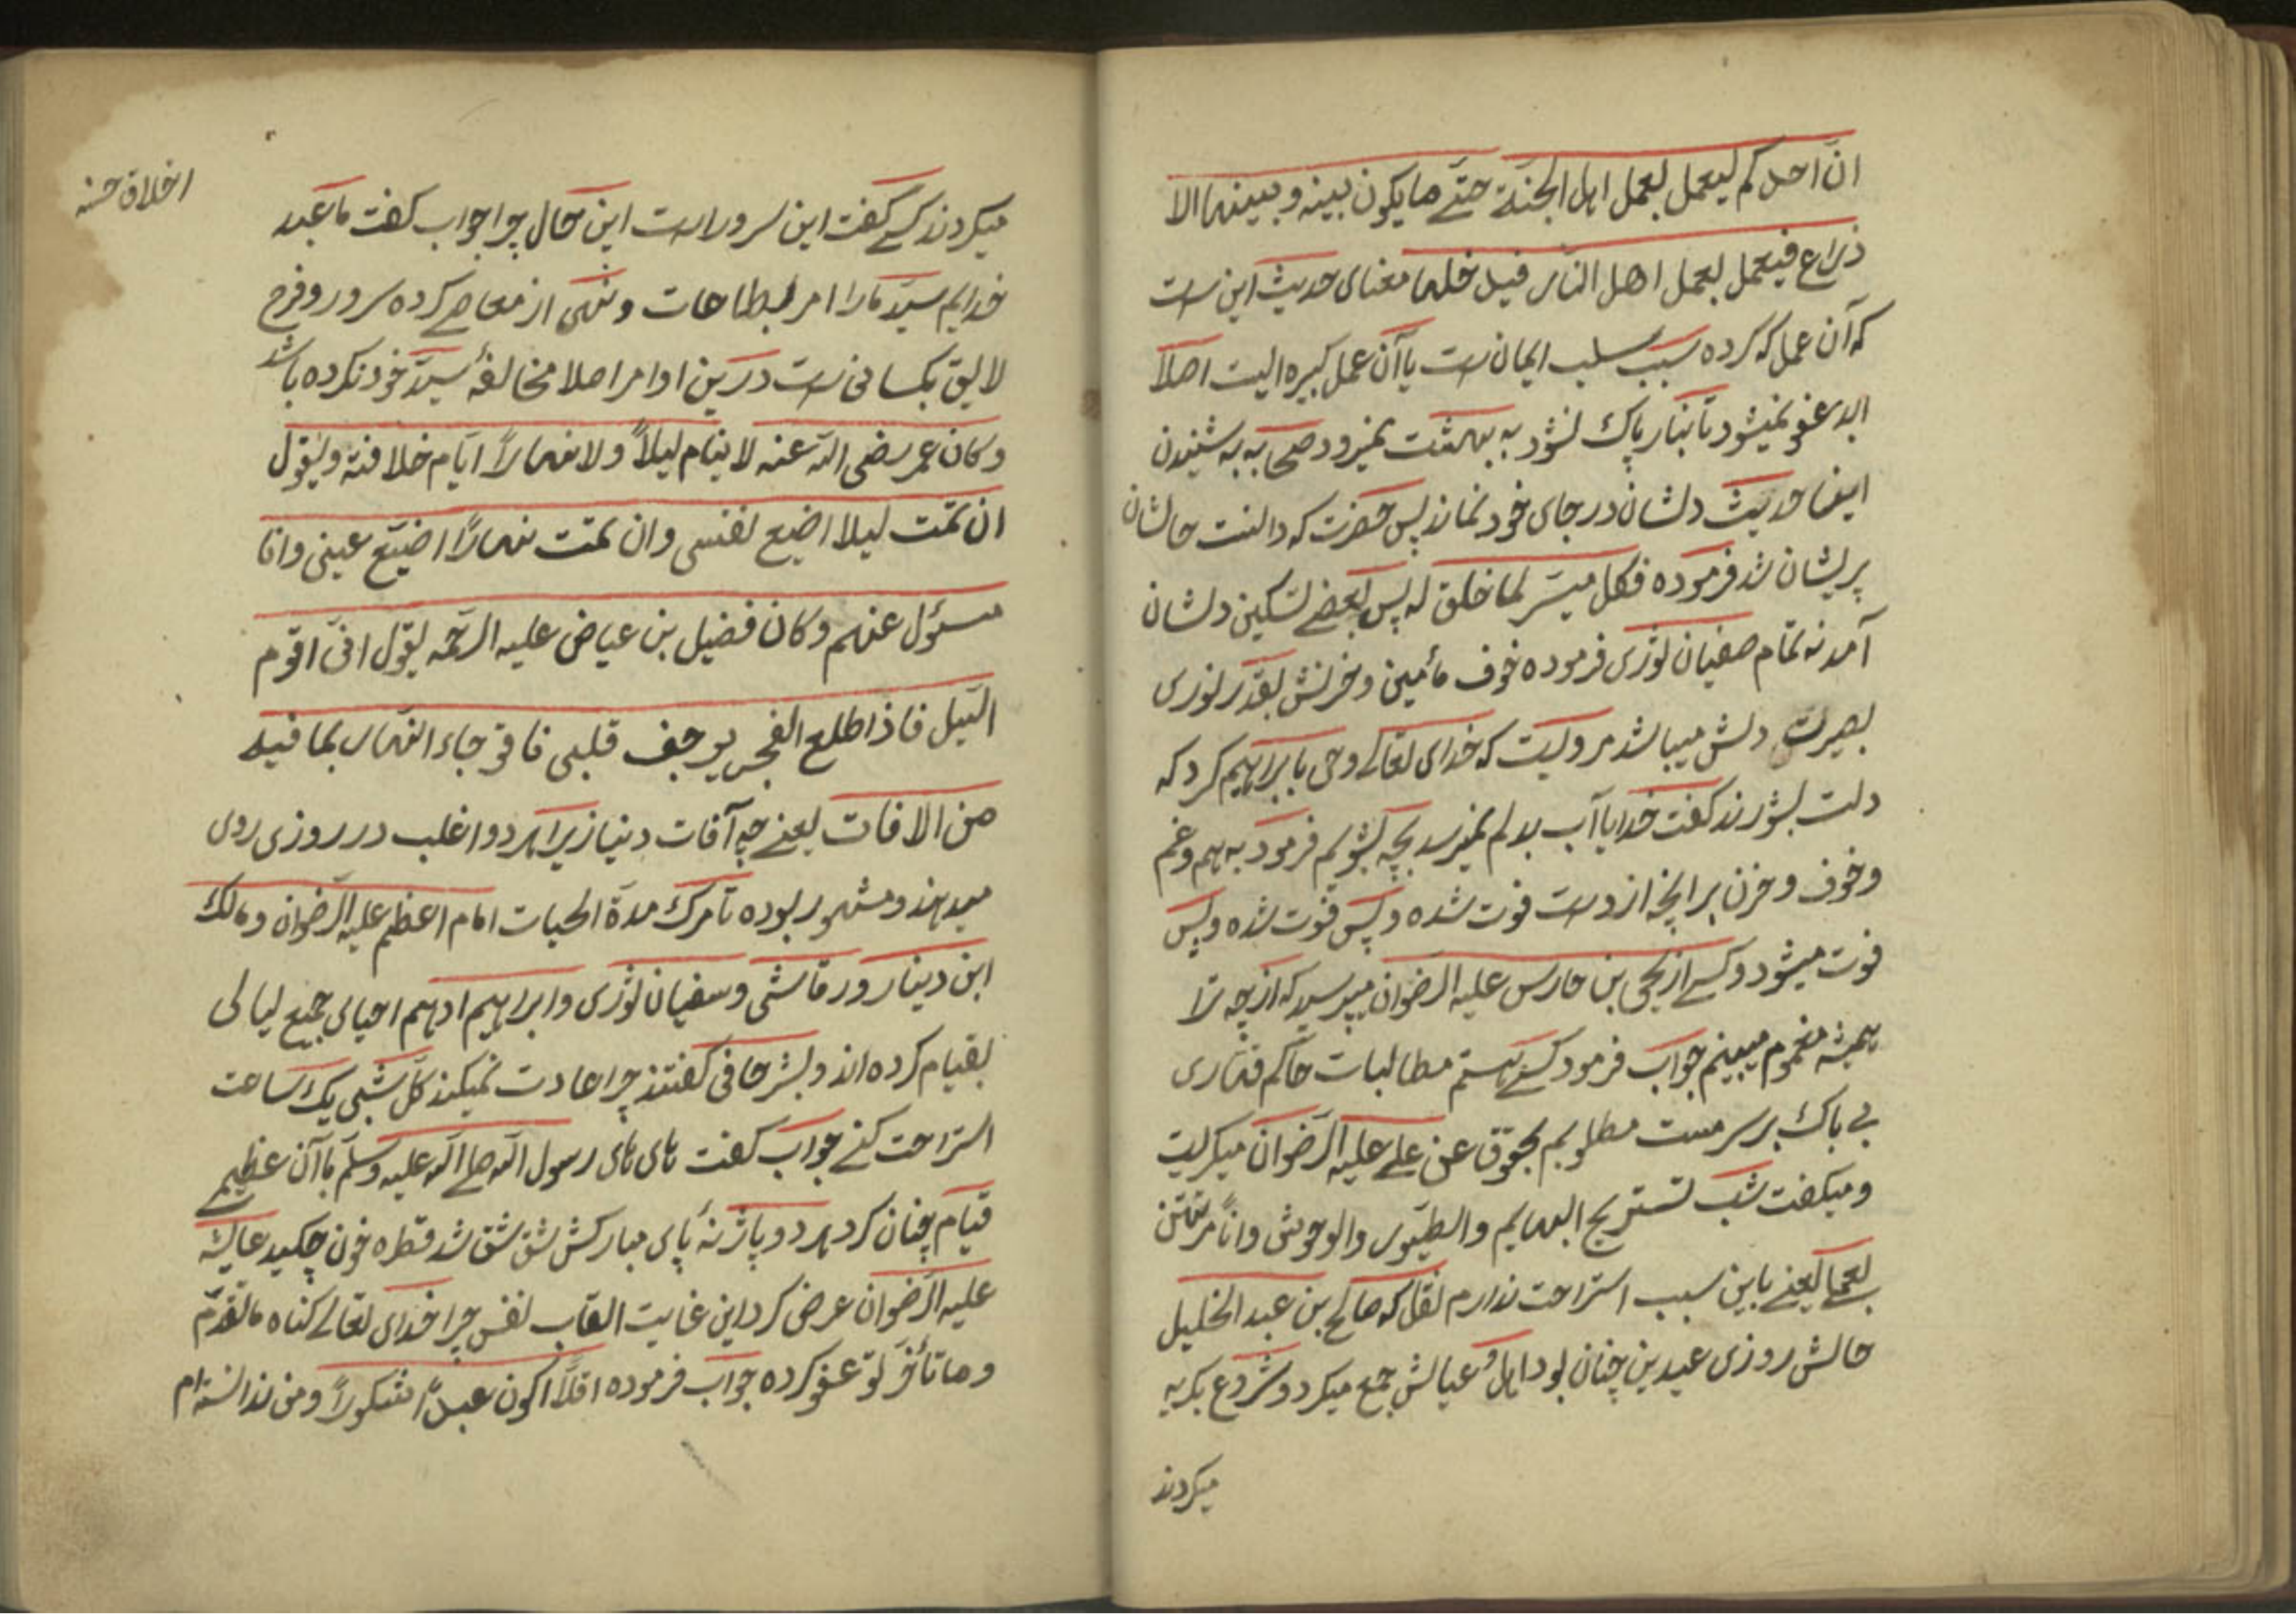 ان احدكم ليعمل بعمل اهل الجنة حتى ما يكون بينه و بينها الا
ذراع فيعمل بعمل اهل النار فيدخلها معنای حديث اين است
كه آن عمل كه كرده سبب سلب ايمان است يا آن عمل كبيره اليت اصلا
ابد عفو نميشود تا بنار پاك نشود به بهشت نميرود صحابه به شنيدن
ايضا حديث دلشان در جای خود نماند پس حضرت كه دانست حالشان
پريشان شد فرموده فكل ميسر لما خلق له پس بعضی تسكين دلشان
آمد نه تمام صفيان ثوری فرموده خوف مأمين و حزنش بقدر نوری
بصيرت دلش ميباشد مرويست كه خدای تعالی وحی با برابراهيم كرد كه
دلت بشور ند گفت خدايا آب بدلم نميرسد بچه بشويم فرمود به هم و غم
و خوف و حزن بر آنچه از دست فوت شده و پس فوت شده و پس
فوت ميشود و كسی از يحيی بن حارس عليه الرضوان ميپرسيد كه از چه ترا
هميشه مغموم ميبينم جواب فرمود كسی هستم مطالبات حاكم قهاری
بی باك بر سر مست مطلوبم بحقوق عن علی عليه الرضوان ميگريست
و ميگفت شب تستريح البهايم والطيور والوحوش وانا مرتهن
بعملی يعنی باين سبب استراحت ندارم نقل كه صالح بن عبد الخليل
حالش روزی عيدين چنان بود اهل و عيالش جمع ميكرد و شروع بگريه
ميكردند
اخلاق حسنه
ميكردند كسی گفت اين سرور است اين حال چرا جواب گفت ما عبد
خدايم سيد ما را امر بطاعات و نهی از معاصی كرده سرور و فرح
لايق بكسانی است درين اوامر اصلا مخالفۀ سيد خود نكرده باشد
وكان عمر رضی الله عنه لا ينام ليلاً ولا نهاراً ايام خلافته ويقول
ان نمت ليلا اضيع نفسی وان نمت نهاراً اضيع عينی وانا
مسئول عنهم وكان فضيل بن عياض عليه الرحمه يقول انی اقوم
الليل فاذا طلع الفجر يرجف قلبی فاقول جاء النهار بما فيه
من الافات يعنی چه آفات دنيا زيرا هر دو اغلب در روزی روی
ميدهند و مشهور بوده تا مرگ مدة الحيات امام اعظم عليه الرضوان و مالك
ابن دينار و رقاشی و سفيان ثوری و ابراهيم ادهم احيای جميع ليالی
بقيام كرده اند و بشر حافی گفتند چرا عادت نميكند كل شبی يك ساعت
استراحت كنی جواب گفت های های رسول الله صلی الله عليه وسلم با آن عظيمی
قيام چنان كرد هر دو پاژنۀ پای مباركش شق شق شد قطره خون چكيد عايشه
عليه الرضوان عرض كرد اين غايت اتعاب نفس چرا خدای تعالی گناه ما تقدم
وما تأخر تو عفو كرده جواب فرموده افلا اكون عبداً شكوراً و من ندانسته ام